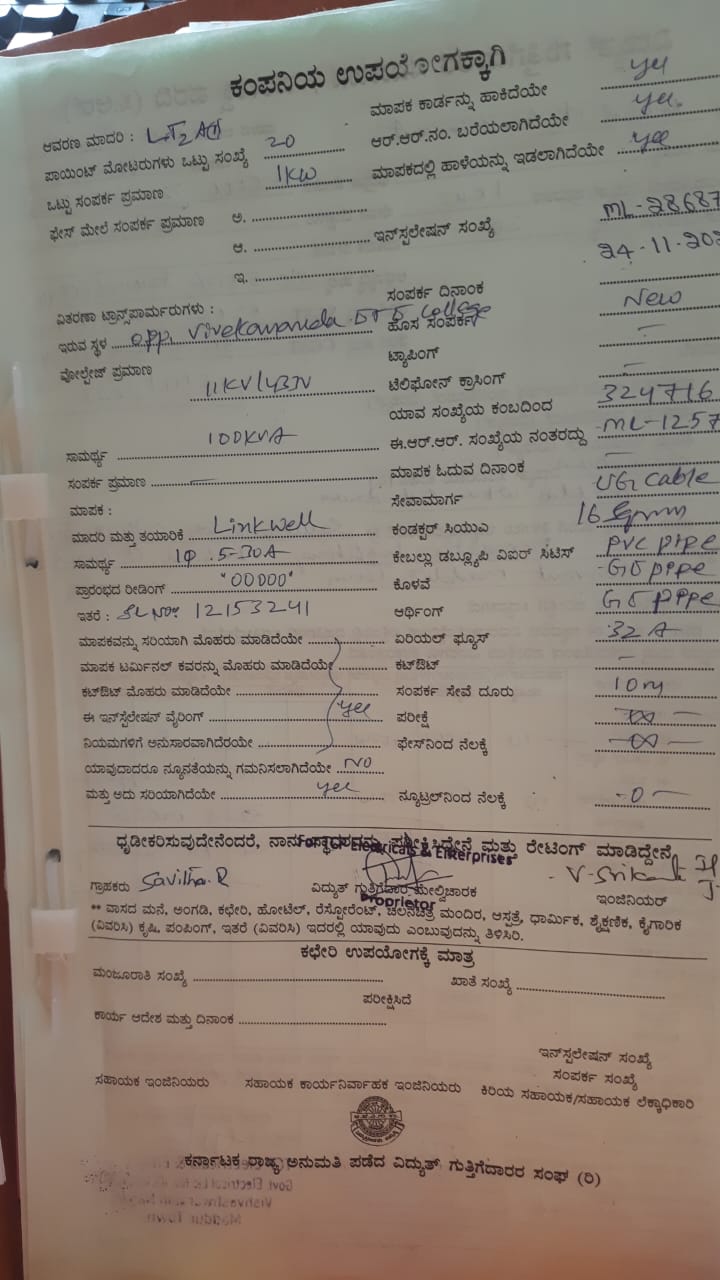 ಕಂಪನಿಯ ಉಪಯೋಗಕ್ಕಾಗಿ
ಆವರಣ ಮಾದರಿ : LT2A(I)
ಪಾಯಿಂಟ್ ಮೋಟರುಗಳು ಒಟ್ಟು ಸಂಖ್ಯೆ 20
ಒಟ್ಟು ಸಂಪರ್ಕ ಪ್ರಮಾಣ 1KW
ಫೇಸ್ ಮೇಲೆ ಸಂಪರ್ಕ ಪ್ರಮಾಣ ಅ. ....................
ಆ. ....................
ಇ. ....................
ವಿತರಣಾ ಟ್ರಾನ್ಸ್‌ಫಾರ್ಮರುಗಳು :
ಇರುವ ಸ್ಥಳ opp. Vivekananda College
ವೋಲ್ಟೇಜ್ ಪ್ರಮಾಣ 11KV/433V
ಸಾಮರ್ಥ್ಯ 100KVA
ಸಂಪರ್ಕ ಪ್ರಮಾಣ —
ಮಾಪಕ :
ಮಾದರಿ ಮತ್ತು ತಯಾರಿಕೆ Linkwell
ಸಾಮರ್ಥ್ಯ 1Φ .5-30A
ಪ್ರಾರಂಭದ ರೀಡಿಂಗ್ "00000"
ಇತರೆ : SL No: 12153241
ಮಾಪಕವನ್ನು ಸರಿಯಾಗಿ ಮೊಹರು ಮಾಡಿದೆಯೇ ....................
ಮಾಪಕ ಟರ್ಮಿನಲ್ ಕವರನ್ನು ಮೊಹರು ಮಾಡಿದೆಯೇ ....................
ಕಟ್‌ಔಟ್ ಮೊಹರು ಮಾಡಿದೆಯೇ ....................
ಈ ಇನ್‌ಸ್ಟಲೇಷನ್ ವೈರಿಂಗ್ yes
ನಿಯಮಗಳಿಗೆ ಅನುಸಾರವಾಗಿದೆರಯೇ ....................
ಯಾವುದಾದರೂ ನ್ಯೂನತೆಯನ್ನು ಗಮನಿಸಲಾಗಿದೆಯೇ NO
ಮತ್ತು ಅದು ಸರಿಯಾಗಿದೆಯೇ yes
ಮಾಪಕ ಕಾರ್ಡನ್ನು ಹಾಕಿದೆಯೇ yes
ಆರ್.ಆರ್.ನಂ. ಬರೆಯಲಾಗಿದೆಯೇ yes
ಮಾಪಕದಲ್ಲಿ ಹಾಳೆಯನ್ನು ಇಡಲಾಗಿದೆಯೇ yes
ಇನ್‌ಸ್ಟಲೇಷನ್ ಸಂಖ್ಯೆ ML-28687
ಸಂಪರ್ಕ ದಿನಾಂಕ 24.11.202
ಹೊಸ ಸಂಪರ್ಕ New
ಟ್ಯಾಪಿಂಗ್ —
ಟೆಲಿಫೋನ್ ಕ್ರಾಸಿಂಗ್ —
ಯಾವ ಸಂಖ್ಯೆಯ ಕಂಬದಿಂದ 324716
ಈ.ಆರ್.ಆರ್. ಸಂಖ್ಯೆಯ ನಂತರದ್ದು ML-1257
ಮಾಪಕ ಓದುವ ದಿನಾಂಕ —
ಸೇವಾಮಾರ್ಗ UG cable
ಕಂಡಕ್ಟರ್ ಸಿಯುವಿ 16 Sqmm
ಕೇಬಲ್ಲು ಡಬ್ಲ್ಯೂಪಿ ವಿಐರ್ ಸಿಟಿಸ್ PVC pipe
ಕೊಳವೆ GI pipe
ಆರ್ಥಿಂಗ್ GI pipe
ಏರಿಯಲ್ ಫ್ಯೂಸ್ 32 A
ಕಟ್‌ಔಟ್ —
ಸಂಪರ್ಕ ಸೇವೆ ದೂರು 10m
ಪರೀಕ್ಷೆ ∞ —
ಫೇಸ್‌ನಿಂದ ನೆಲಕ್ಕೆ —∞—
ನ್ಯೂಟ್ರಲ್‌ನಿಂದ ನೆಲಕ್ಕೆ -0-
ಧೃಡೀಕರಿಸುವುದೇನೆಂದರೆ, ನಾನು ಪರೀಕ್ಷಿಸಿದ್ದೇನೆ ಮತ್ತು ರೇಟಿಂಗ್ ಮಾಡಿದ್ದೇನೆ
Electricals & Enterprises
ಗ್ರಾಹಕರು Savitha.R ವಿದ್ಯುತ್ ಗುತ್ತಿಗೆದಾರ ಮೇಲ್ವಿಚಾರಕ ಇಂಜಿನಿಯರ್
Proprietor
** ವಾಸದ ಮನೆ, ಅಂಗಡಿ, ಕಛೇರಿ, ಹೋಟೆಲ್, ರೆಸ್ಟೋರೆಂಟ್, ಚಲನಚಿತ್ರ ಮಂದಿರ, ಆಸ್ಪತ್ರೆ, ಧಾರ್ಮಿಕ, ಶೈಕ್ಷಣಿಕ, ಕೈಗಾರಿಕ
(ವಿವರಿಸಿ) ಕೃಷಿ, ಪಂಪಿಂಗ್, ಇತರೆ (ವಿವರಿಸಿ) ಇದರಲ್ಲಿ ಯಾವುದು ಎಂಬುವುದನ್ನು ತಿಳಿಸಿರಿ.
ಕಛೇರಿ ಉಪಯೋಗಕ್ಕೆ ಮಾತ್ರ
ಮಂಜೂರಾತಿ ಸಂಖ್ಯೆ .................... ಖಾತೆ ಸಂಖ್ಯೆ ....................
ಪರೀಕ್ಷಿಸಿದೆ
ಕಾರ್ಯ ಆದೇಶ ಮತ್ತು ದಿನಾಂಕ ....................
ಇನ್‌ಸ್ಟಲೇಷನ್ ಸಂಖ್ಯೆ
ಸಂಪರ್ಕ ಸಂಖ್ಯೆ
ಸಹಾಯಕ ಇಂಜಿನಿಯರು ಸಹಾಯಕ ಕಾರ್ಯನಿರ್ವಾಹಕ ಇಂಜಿನಿಯರು ಕಿರಿಯ ಸಹಾಯಕ/ಸಹಾಯಕ ಲೆಕ್ಕಾಧಿಕಾರಿ
ಕರ್ನಾಟಕ ರಾಜ್ಯ ಅನುಮತಿ ಪಡೆದ ವಿದ್ಯುತ್ ಗುತ್ತಿಗೆದಾರರ ಸಂಘ (ರಿ)